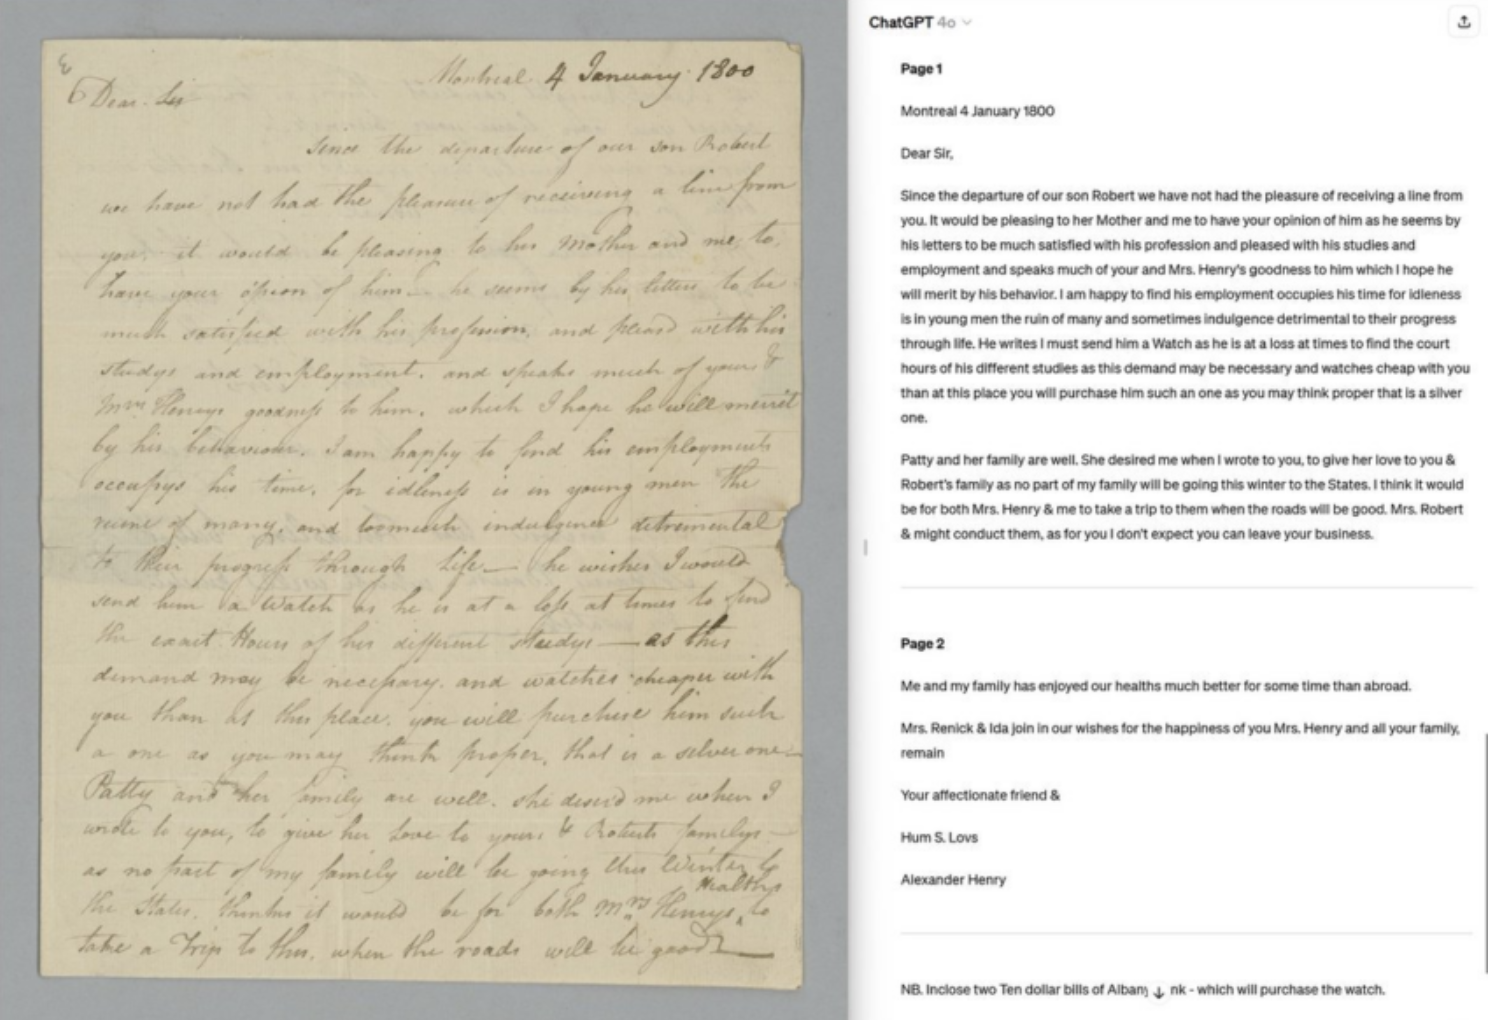 3
Montreal 4 January 1800
Dear Sir
Since the departure of our son Robert
we have not had the pleasure of receiving a line from
you. it would be pleasing to his Mother and me to
have your opion of him — he seems by his letters to be
much satisfied with his profession, and pleasd with his
studys and employment. and speaks much of yours &
Mrs Henrys goodness to him, which I hope he will merrit
by his behaviour. I am happy to find his employments
occupys his time. for idleness is in young men the
ruine of many, and toomuch indulgence detremental
to their progress through Life — he wishes I would
send him a Watch as he is at a loss at times to find
the exact Hours of his different studys — as this
demand may be necessary. and watches cheaper with
you than at this place. you will purchase him such
a one as you may think proper, that is a silver one —
Patty and her family are well. she desird me when I
wrote to you, to give her Love to yours & Roberts familys —
as no part of my family will be going this Winter to
the States, thinks it would be for both Mrs Henrys Healths to
take a Trip to this, when the roads will be good —
ChatGPT 4o
Page 1
Montreal 4 January 1800
Dear Sir,
Since the departure of our son Robert we have not had the pleasure of receiving a line from
you. It would be pleasing to her Mother and me to have your opinion of him as he seems by
his letters to be much satisfied with his profession and pleased with his studies and
employment and speaks much of your and Mrs. Henry's goodness to him which I hope he
will merit by his behavior. I am happy to find his employment occupies his time for idleness
is in young men the ruin of many and sometimes indulgence detrimental to their progress
through life. He writes I must send him a Watch as he is at a loss at times to find the court
hours of his different studies as this demand may be necessary and watches cheap with you
than at this place you will purchase him such an one as you may think proper that is a silver
one.
Patty and her family are well. She desired me when I wrote to you, to give her love to you &
Robert's family as no part of my family will be going this winter to the States. I think it would
be for both Mrs. Henry & me to take a trip to them when the roads will be good. Mrs. Robert
& might conduct them, as for you I don't expect you can leave your business.
Page 2
Me and my family has enjoyed our healths much better for some time than abroad.
Mrs. Renick & Ida join in our wishes for the happiness of you Mrs. Henry and all your family,
remain
Your affectionate friend &
Hum S. Lovs
Alexander Henry
NB. Inclose two Ten dollar bills of Albany nk - which will purchase the watch.